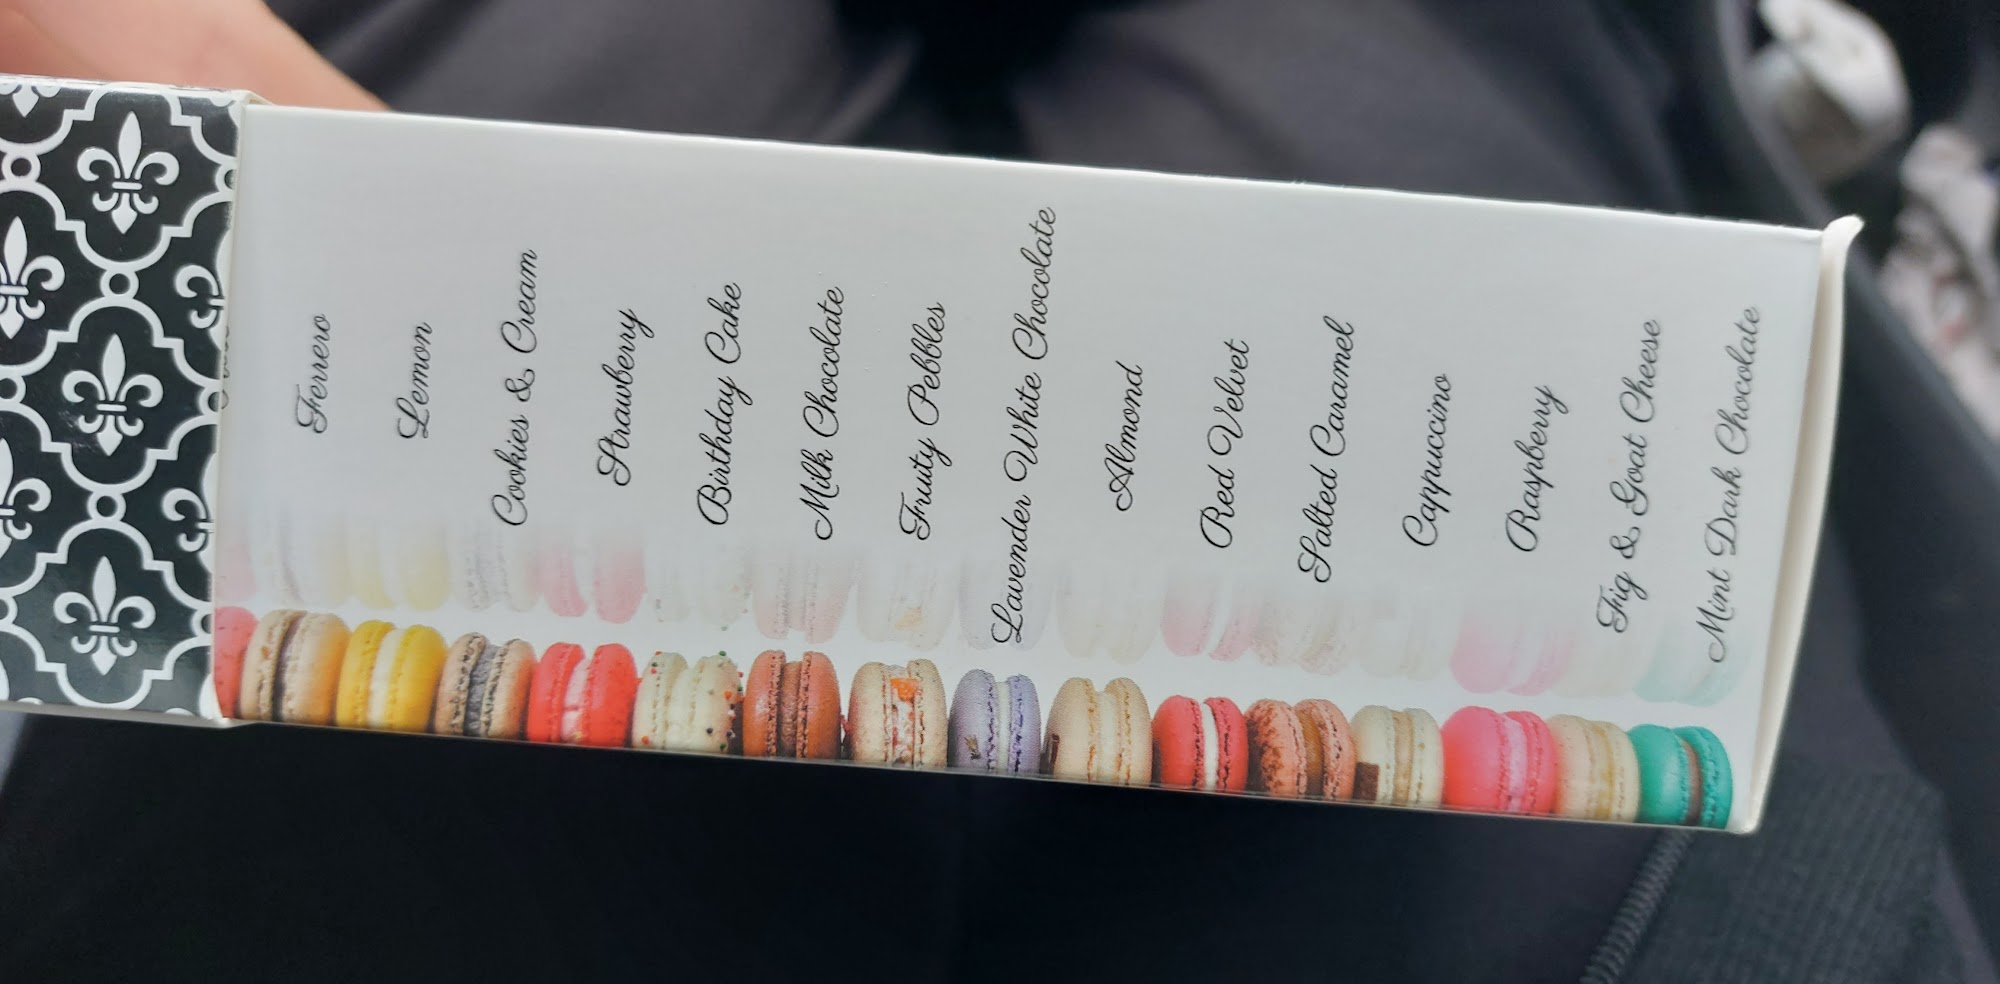 Ferrero
Lemon
Cookies & Cream
Strawberry
Birthday Cake
Milk Chocolate
Fruity Pebbles
Lavender White Chocolate
Almond
Red Velvet
Salted Caramel
Cappuccino
Raspberry
Fig & Goat Cheese
Mint Dark Chocolate